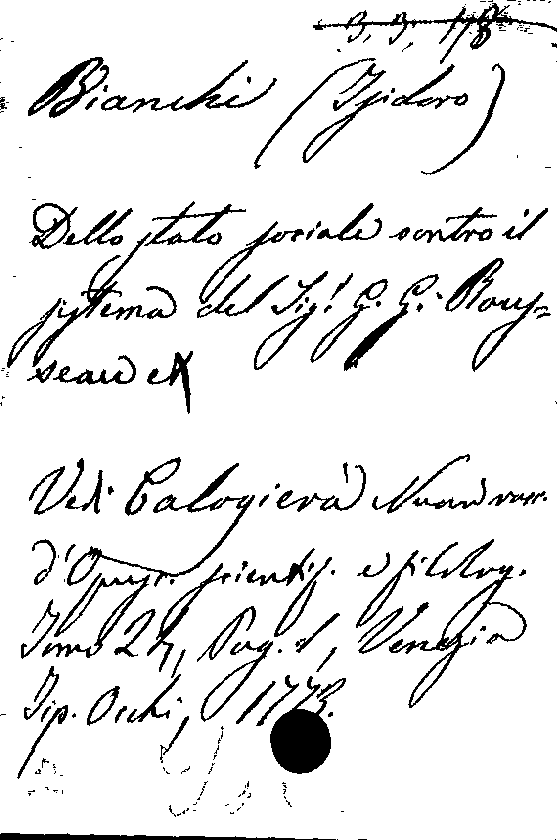 3. 3. 178
Bianchi (Isidoro)
Dello stato sociale contro il
systema del Sig! G. G. Rous=
seau
Vedi Calogierà Nuova racc.
d'Opusc. scientif. e filolog.
Tomo 24, Pag. 1, Venezia
Tip. Occhi, 1773.